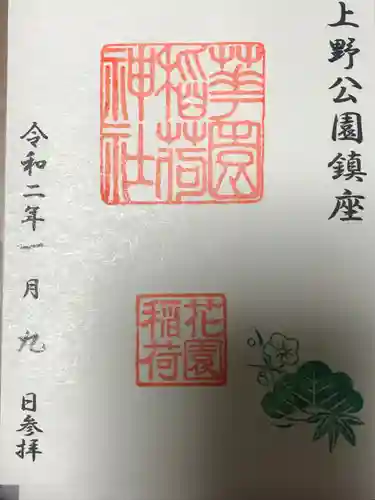 上野公園鎮座
華園
稲荷
神社
花園
稲荷
令和二年一月九日参拝